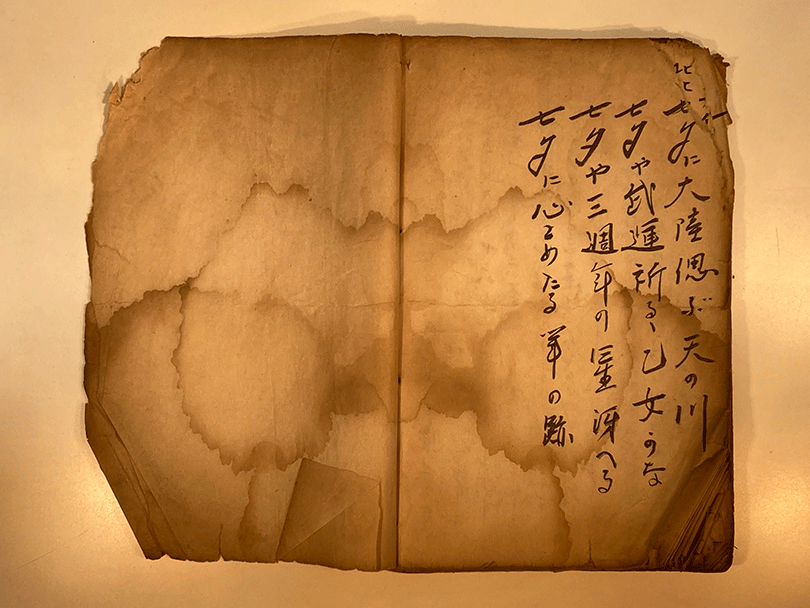 七夕に大陸偲ぶ天の川
七夕や武運祈るゝ乙女かな
七夕や三週年の星冴へる
七夕に心こめたる筆の跡